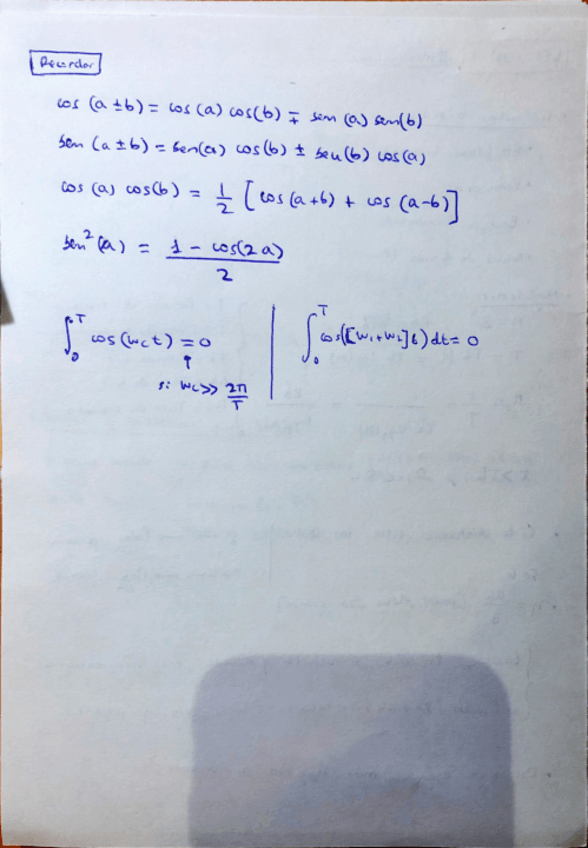 Recordar
cos (a ± b) = cos (a) cos(b) ∓ sen (a) sen(b)
sen (a ± b) = sen(a) cos(b) ± sen(b) cos(a)
cos (a) cos(b) = 1/2 [cos (a+b) + cos (a-b)]
sen²(a) = (1 - cos(2a))/2
∫₀ᵀ cos(wct) = 0 | ∫₀ᵀ cos([w₁+w₂]t) dt = 0
↑
si wc >> 2π/T